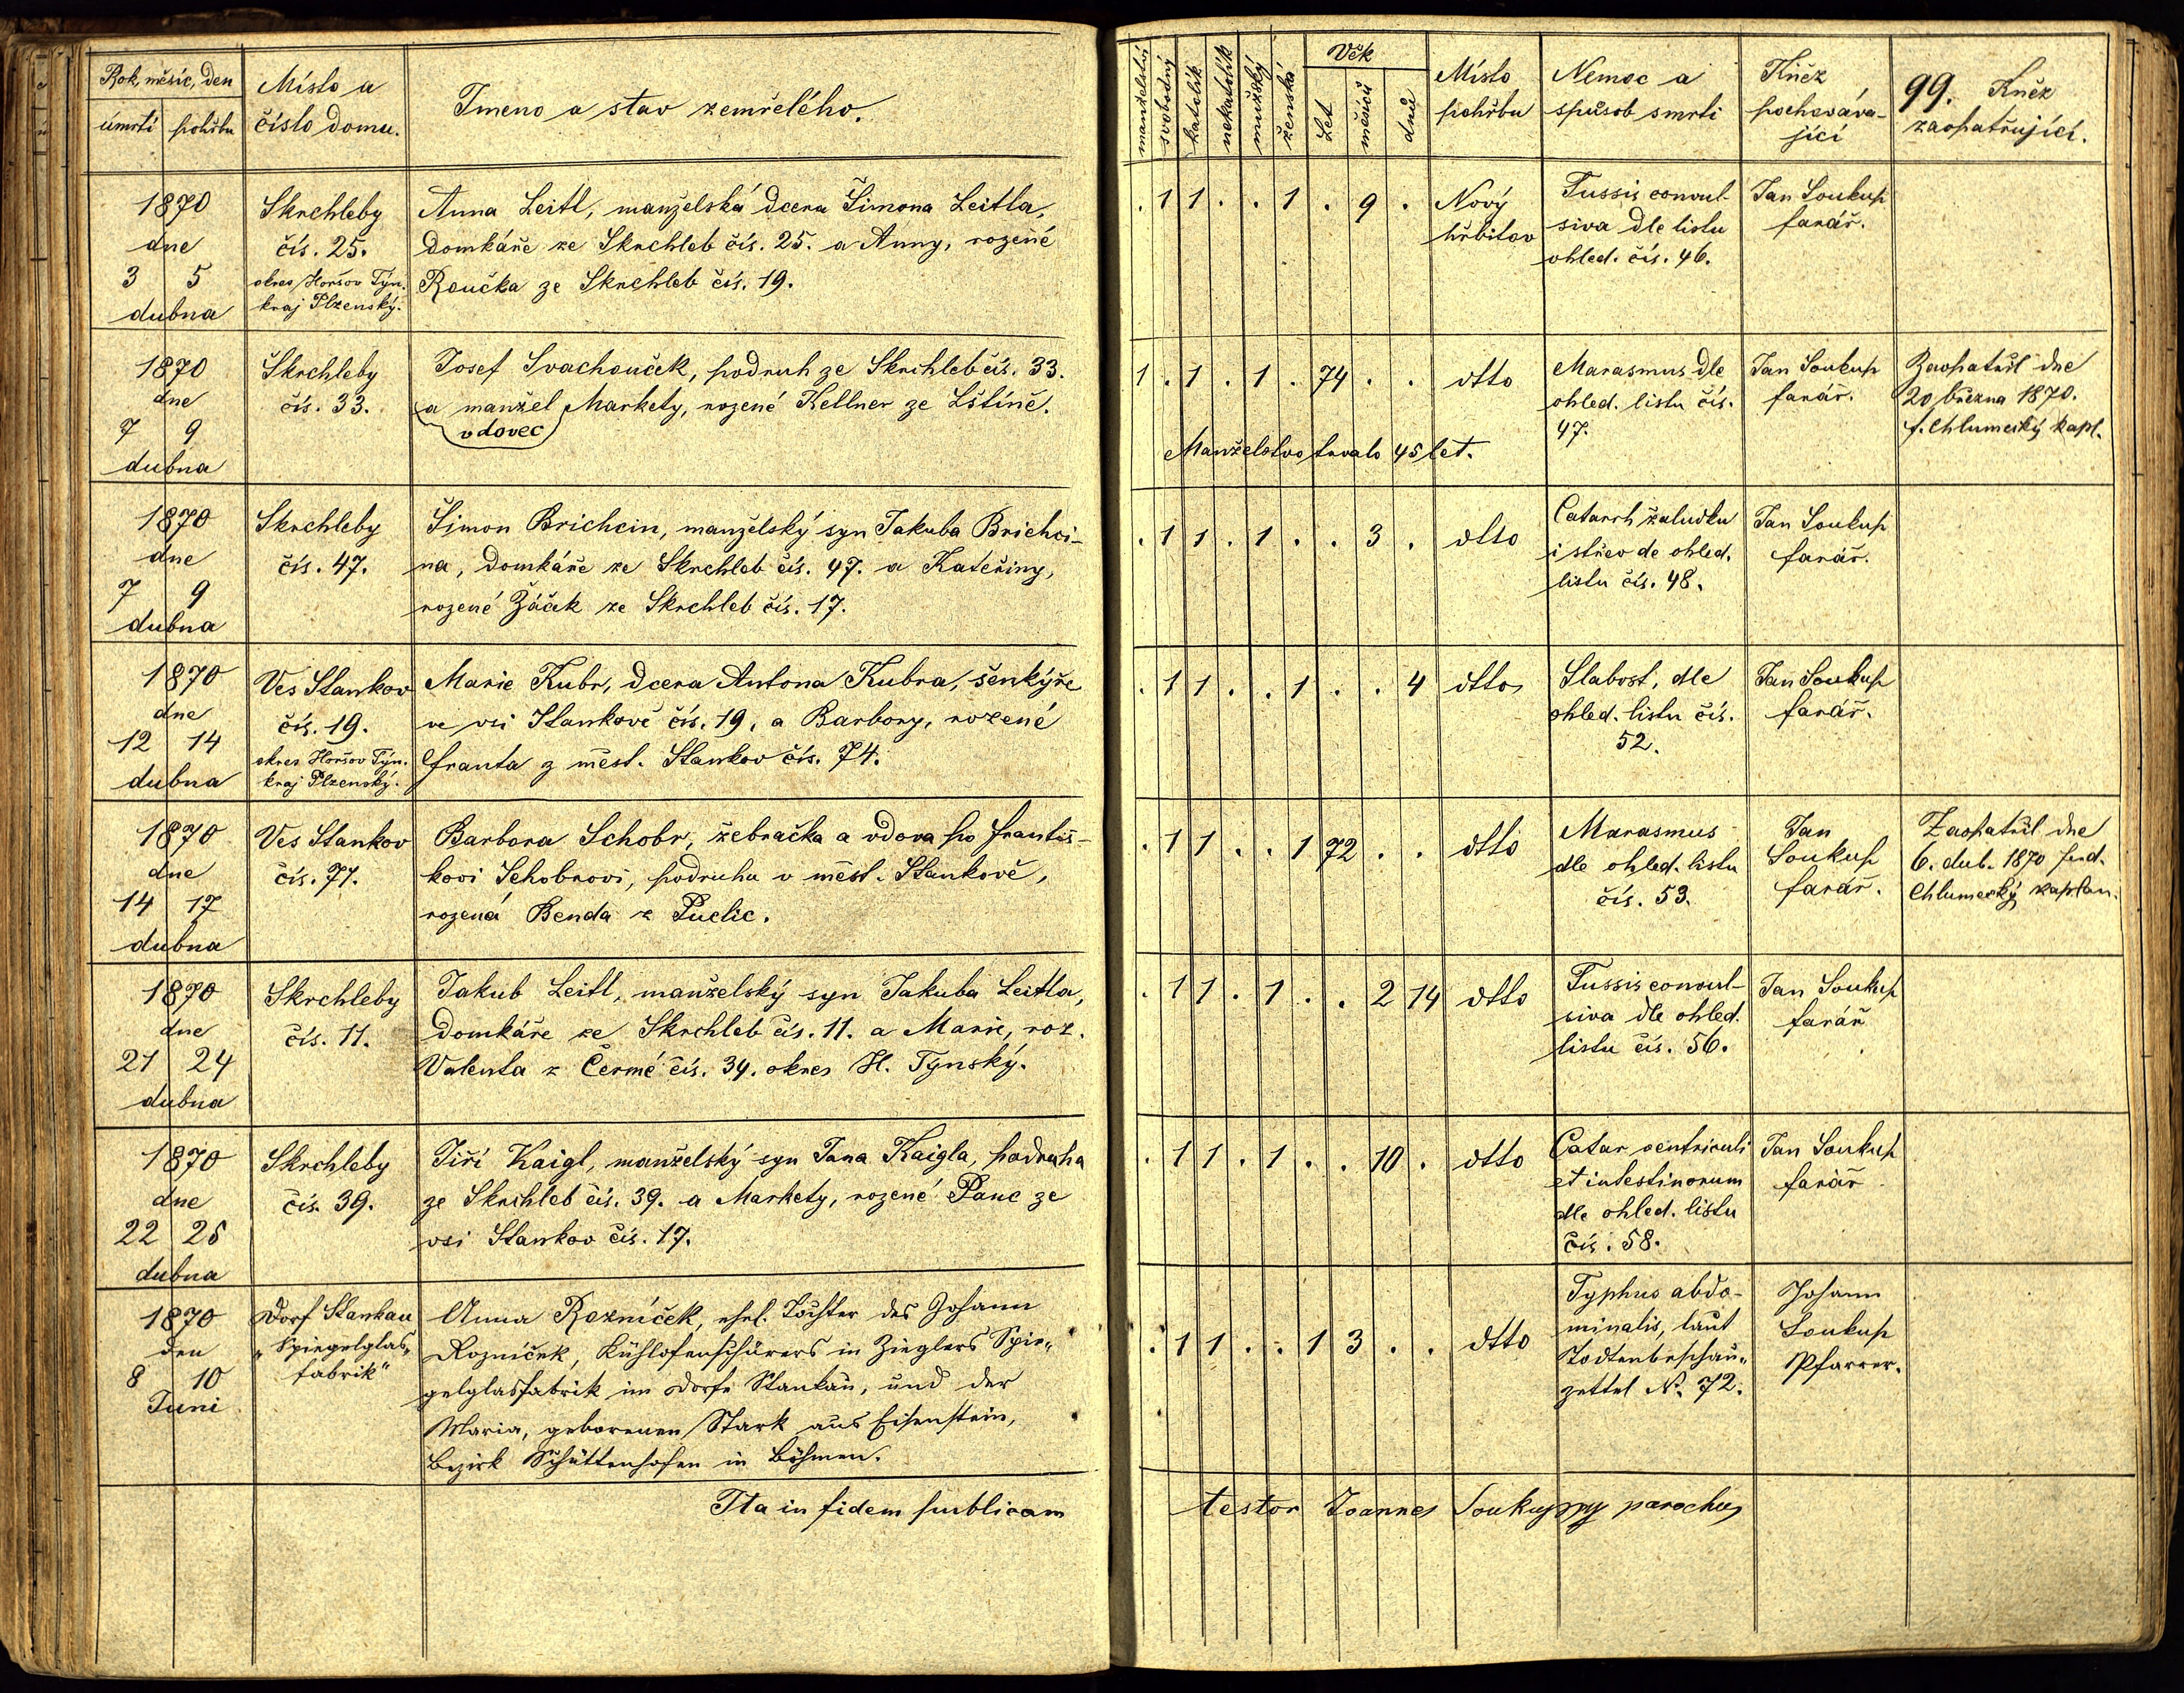 Rok, měsíc, den
úmrtí pohřbu
Místo a
číslo domu.
Jmeno a stav zemřelého.
manželský
svobodný
katolík
nekatolík
mužský
ženská
Věk
Let
měsíců
dnů
Místo
pohřbu
Nemoc a
spůsob smrti
Kněz
pochováva-
jící
99. Kněz
zaopatřující.
1870
dne
3 5
dubna
Skrchleby
čís. 25.
okres Horšov Týn.
kraj Plzenský.
Anna Leitl, manželská dcera Šimona Leitla,
domkáře ze Skrchleb čís. 25. a Anny, rozené
Roučka ze Skrchleb čís. 19.
. 1 1 . . 1 . 9 .
Nový
hřbitov
Tussis convul-
siva dle listu
ohled. čís. 46.
Jan Soukup
farář.
1870
dne
7 9
dubna
Skrchleby
čís. 33.
Josef Svachouček, podruh ze Skrchleb čís. 33.
a manžel Markety, rozené Kellner ze Lštíně.
vdovec
1 . 1 . 1 . 74 . .
Manželstvo trvalo 45 let.
dtto
Marasmus dle
ohled. listu čís.
47.
Jan Soukup
farář.
Zaopatřil dne
20 března 1870.
f. Chlumecký kapl.
1870
dne
7 9
dubna
Skrchleby
čís. 47.
Šimon Brichcin, manželský syn Jakuba Brichci-
na, domkáře ze Skrchleb čís. 47. a Kateřiny,
rozené Žáček ze Skrchleb čís. 17.
. 1 1 . 1 . . 3 .
dtto
Catarrh žaludku
i střev de ohled.
listu čís. 48.
Jan Soukup
farář.
1870
dne
12 14
dubna
Ves Stankov
čís. 19.
okres Horšov Týn.
kraj Plzenský.
Marie Kubr, dcera Antona Kubra, šenkýře
ve vsi Stankově čís. 19, a Barbory, rozené
Franta z měst. Stankov čís. 74.
. 1 1 . . 1 . . 4
dtto
Slabost, dle
ohled. listu čís.
52.
Jan Soukup
farář.
1870
dne
14 17
dubna
Ves Stankov
čís. 71.
Barbora Schobr, žebračka a vdova po Františ-
kovi Schobrovi, podruhu v měst. Stankově,
rozená Benda z Puclic.
. 1 1 . . 1 72 . .
dtto
Marasmus
dle ohled. listu
čís. 53.
Jan
Soukup
farář.
Zaopatřil dne
6. dub. 1870 ferd.
Chlumecký kaplan.
1870
dne
21 24
dubna
Skrchleby
čís. 11.
Jakub Leitl, manželský syn Jakuba Leitla,
domkáře ze Skrchleb čís. 11. a Marie, roz.
Valenta z Čermé čís. 34. okres H. Týnský.
. 1 1 . 1 . . 2 14
dtto
Tussis convul-
siva dle ohled.
listu čís. 56.
Jan Soukup
farář
1870
dne
22 25
dubna
Skrchleby
čís. 39.
Jiří Kaigl, manželský syn Jana Kaigla, podruha
ze Skrchleb čís. 39. a Markety, rozené Panc ze
vsi Stankov čís. 17.
. 1 1 . 1 . . 10 .
dtto
Catar ventriculi
et intestinorum
dle ohled. listu
čís. 58.
Jan Soukup
farář
1870
den
8 10
Juni
Dorf Stankau
„Spiegelglas„
fabrik“
Anna Rozníček, ehel. Tochter des Johann
Rozníček, Kühlofenschürers in Zieglers Spie„
gelglasfabrik im Dorfe Stankau, und der
Maria, geborenen Stark aus Eisenstein,
Bezirk Schüttenhofen in Böhmen.
. 1 1 . . 1 3 . .
dtto
Typhus abdo-
minalis, laut
Todtenbeschau„
zettel No. 72.
Johann
Soukup
Pfarrer.
Ita in fidem publicam testor Joannes Soukup parochus